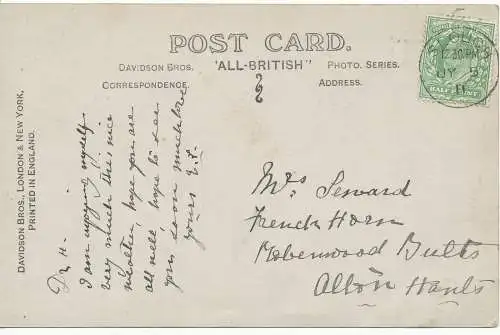 POST CARD.
DAVIDSON BROS. "ALL-BRITISH" PHOTO. SERIES.
CORRESPONDENCE. ADDRESS.
DAVIDSON BROS., LONDON & NEW YORK,
PRINTED IN ENGLAND.
Dr H.
I am enjoying myself
very much this nice
weather hope you are
all well, hope to see
you soon much love
yours
12.30 PM
11
HALFPENNY
Mrs Seward
French Horn
Butts
Alton Hants